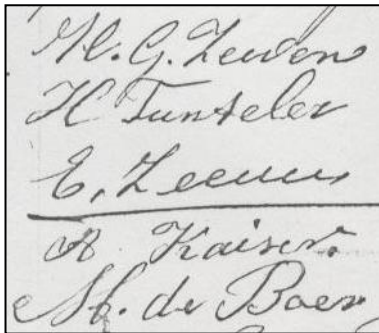 H. G. Zeeven
H Tunteler
E. Zeeuw
A Kaiser.
M. de Boer